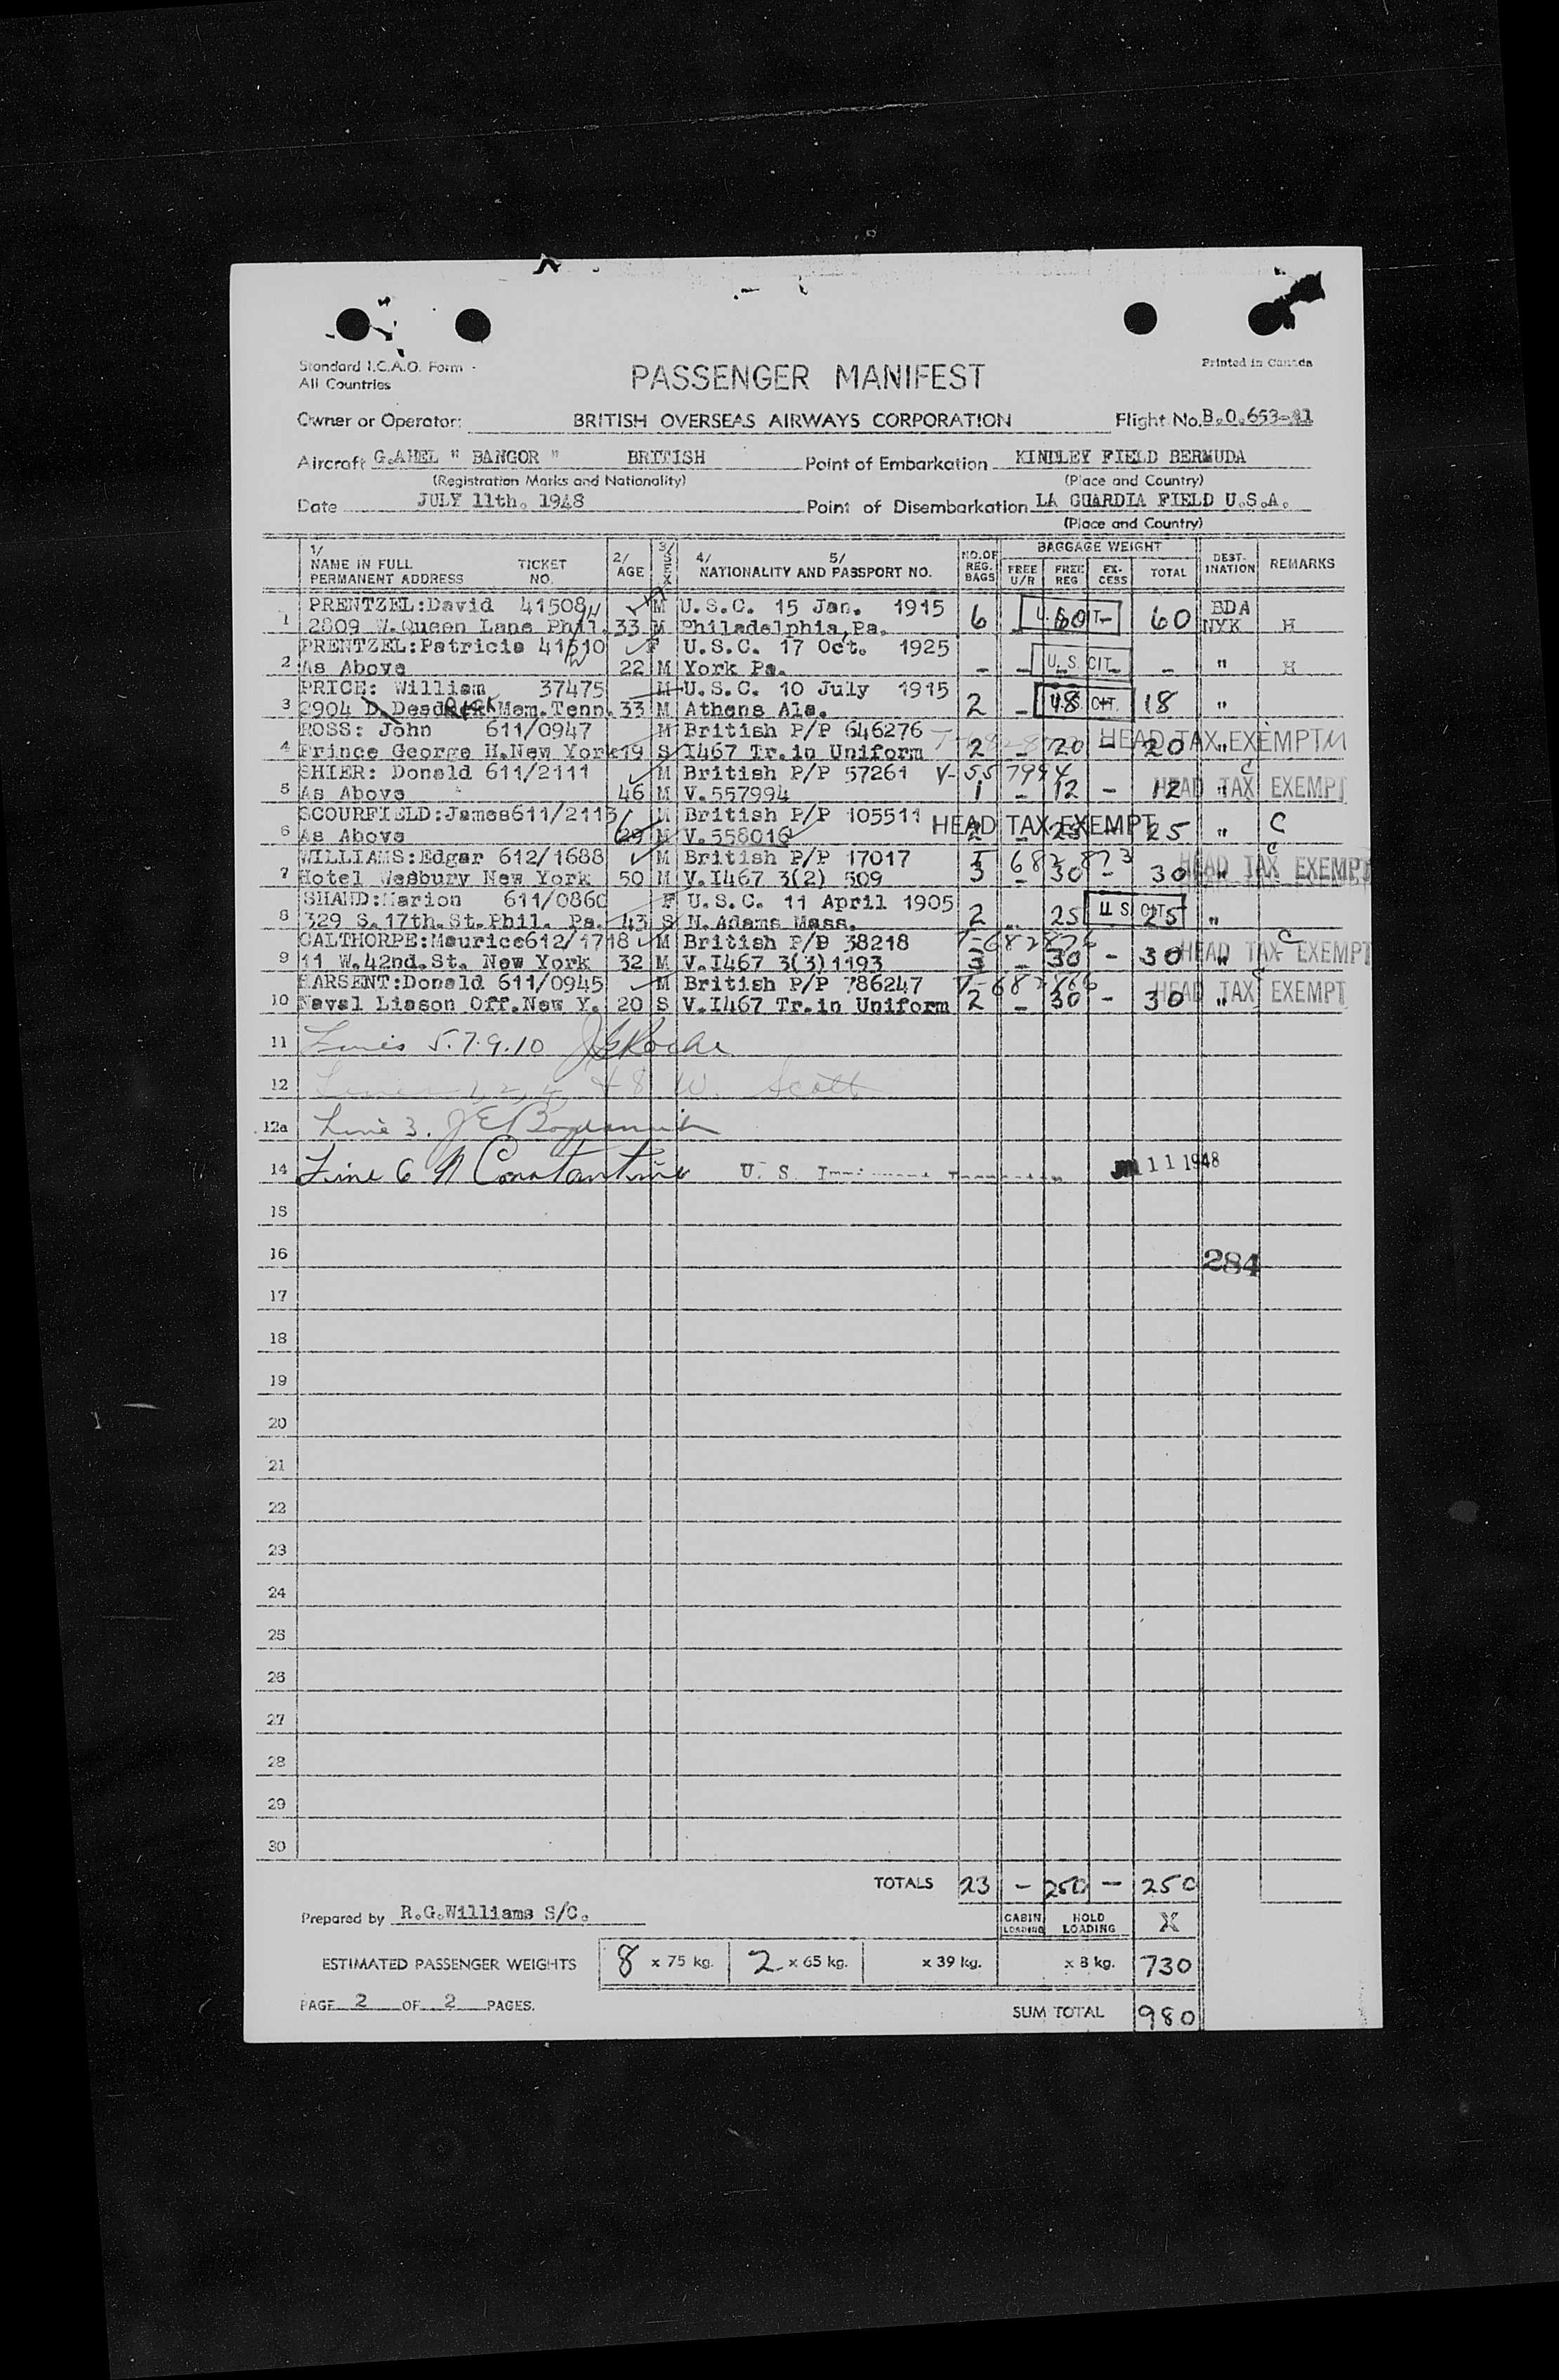 Standard I.C.A.O. Form
All Countries
PASSENGER MANIFEST
Printed in Canada
Owner or Operator: BRITISH OVERSEAS AIRWAYS CORPORATION Flight No. B.O.653-
Aircraft G.AHEL " BANGOR " BRITISH Point of Embarkation KINDLEY FIELD BERMUDA
(Registration Marks and Nationality) (Place and Country)
Date JULY 11th. 1948 Point of Disembarkation LA GUARDIA FIELD U.S.A.
(Place and Country)
1/ NAME IN FULL PERMANENT ADDRESS TICKET NO. 2/ AGE 3/ SEX 4/ 5/ NATIONALITY AND PASSPORT NO. NO. OF REG. BAGS BAGGAGE WEIGHT FREE U/R FREE REG EX-CESS TOTAL DEST-INATION REMARKS
PRENTZEL:David 41508 M U.S.C. 15 Jan. 1915 BDA
1 2809 W.Queen Lane Phil. 33 M Philadelphia,Pa. 6 - 60 - 60 NYK H
U.S. CIT.
PRENTZEL:Patricia 41510 F U.S.C. 17 Oct. 1925
2 As Above 22 M York Pa. - - - - - " H
U.S. CIT.
PRICE: William 37475 M U.S.C. 10 July 1915
3 2904 D. Mem.Tenn. 33 M Athens Ala. 2 - 18 18 "
U.S. CIT.
ROSS: John 611/0947 M British P/P 646276
4 Prince George H.New York 19 S I467 Tr.in Uniform 2 - 20 - 20 "
HEAD TAX EXEMPT
SHIER: Donald 611/2111 M British P/P 57261 V-557994 C
5 As Above 46 M V.557994 1 - 12 - 12 "
HEAD TAX EXEMPT
SCOURFIELD:James 611/2113 M British P/P 105511
6 As Above 29 M V.558016 2 - 25 - 25 " C
HEAD TAX EXEMPT
WILLIAMS:Edgar 612/1688 M British P/P 17017 682873 C
7 Hotel Wesbury New York 50 M V.I467 3(2) 509 3 - 30 - 30 "
HEAD TAX EXEMPT
SHAND:Marion 611/0860 F U.S.C. 11 April 1905
8 329 S.17th.St.Phil. Pa. 43 S N.Adams Mass. 2 - 25 25 "
U.S. CIT.
CALTHORPE:Maurice 612/1718 M British P/P 38218 C
9 11 W.42nd.St. New York 32 M V.I467 3(3)1193 3 - 30 - 30 "
HEAD TAX EXEMPT
EARSENT:Donald 611/0945 M British P/P 786247 V-682866 C
10 Naval Liason Off.New Y. 20 S V.I467 Tr.in Uniform 2 - 30 - 30 "
HEAD TAX EXEMPT
11 Lines 5.7.9.10
12 Lines 1, 2, 4 & 8 W. Scott
12a Line 3.
14 Line 6 N Constantine U. S. JUL 11 1948
15
16 284
17
18
19
20
21
22
23
24
25
26
27
28
29
30
TOTALS 23 - 250 - 250
Prepared by R.G.Williams S/C. CABIN LOADING HOLD LOADING X
ESTIMATED PASSENGER WEIGHTS 8 x 75 kg. 2 x 65 kg. x 39 kg. x 8 kg. 730
PAGE 2 OF 2 PAGES. SUM TOTAL 980